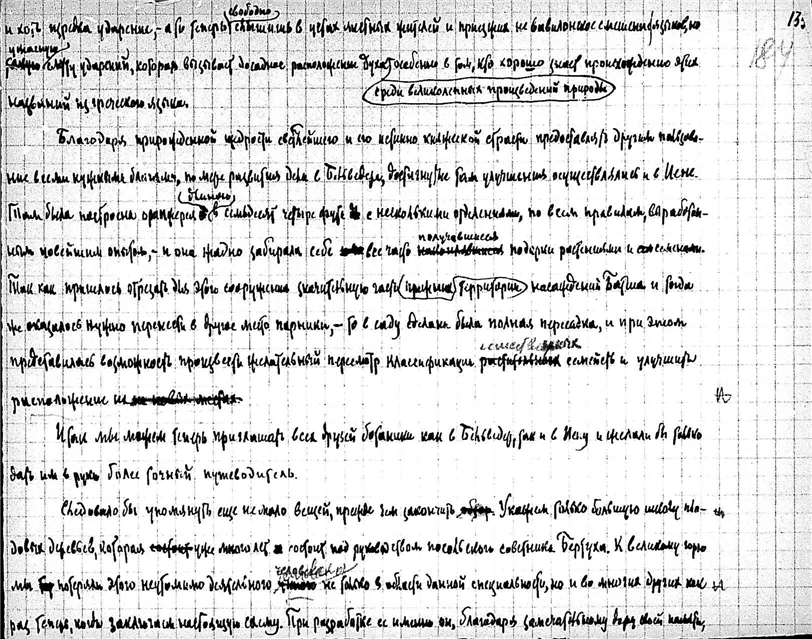 13
184
свободно
и хоть изредка ударение, – а то теперь слышишь в устах местных жителей и приезжих не вавилонское смешение языков, но
ужасную
ударений, которая вызывает досадное расположение духа особенно в том, кто хорошо знает происхождение этих
среди великолепных произведений природы
названий из греческого языка.
Благодаря прирожденной щедрости светлейшего и его истинно княжеской страсти предоставлять другим пользова-
ние всеми нужными благами, по мере развития дела в Бельведере, достигнутые там улучшения осуществлялись и в Иене.
длиною
Там была построена оранжерея в семьдесят четыре фута с несколькими отделениями, по всем правилам, выработан-
получавшиеся
ным новейшим опытом, – и она жадно забирала себе все часто подарки растениями и семенами.
Так как пришлось отрезать для этого сооружения значительную часть прежних территории насаждений Батша и тогда
же оказалось нужно перенести в другое место парники, – то в саду сделана была полная пересадка, и при этом
естественных
представилась возможность произвести желательный пересмотр классификации семейств и улучшить
расположение их на новых местах.
Итак мы можем теперь приглашать всех друзей ботаники как в Бельведер, так и в Иену и желали бы только
дать им в руки более точный путеводитель.
Следовало бы упомянуть еще не мало вещей, прежде чем закончить обзор. Укажем только большую школу пло-
довых деревьев, которая уже много лет состоит под руководством посольского советника Бертуха. К великому горю
человека
мы потеряли этого неутомимо деятельного не только в области данной специальности, но и во многих других как
раз теперь, когда заключаем настоящую схему. При разработке ее именно он, благодаря замечательному дару своей памяти,